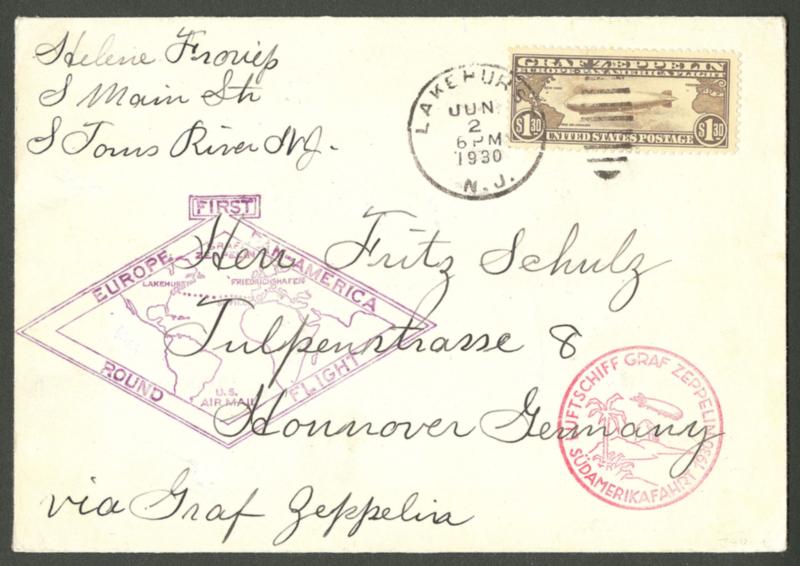 Helene Froriep
S Main Str
S Toms River NJ.
LAKEHURST
JUN
2
6 PM
1930
N.J.
GRAF ZEPPELIN
EUROPE-PAN AMERICA FLIGHT
$1.30
UNITED STATES POSTAGE
$1.30
FIRST
EUROPE
PAN-AMERICA
ROUND
FLIGHT
GRAF
ZEPPELIN
LAKEHURST
FRIEDRICHHAFEN
U.S.
AIR MAIL
Herr Fritz Schulz
Tulpenstrasse 8
Hannover Germany
via Graf Zeppelin
LUFTSCHIFF GRAF ZEPPELIN
SÜDAMERIKAFAHRT 1930